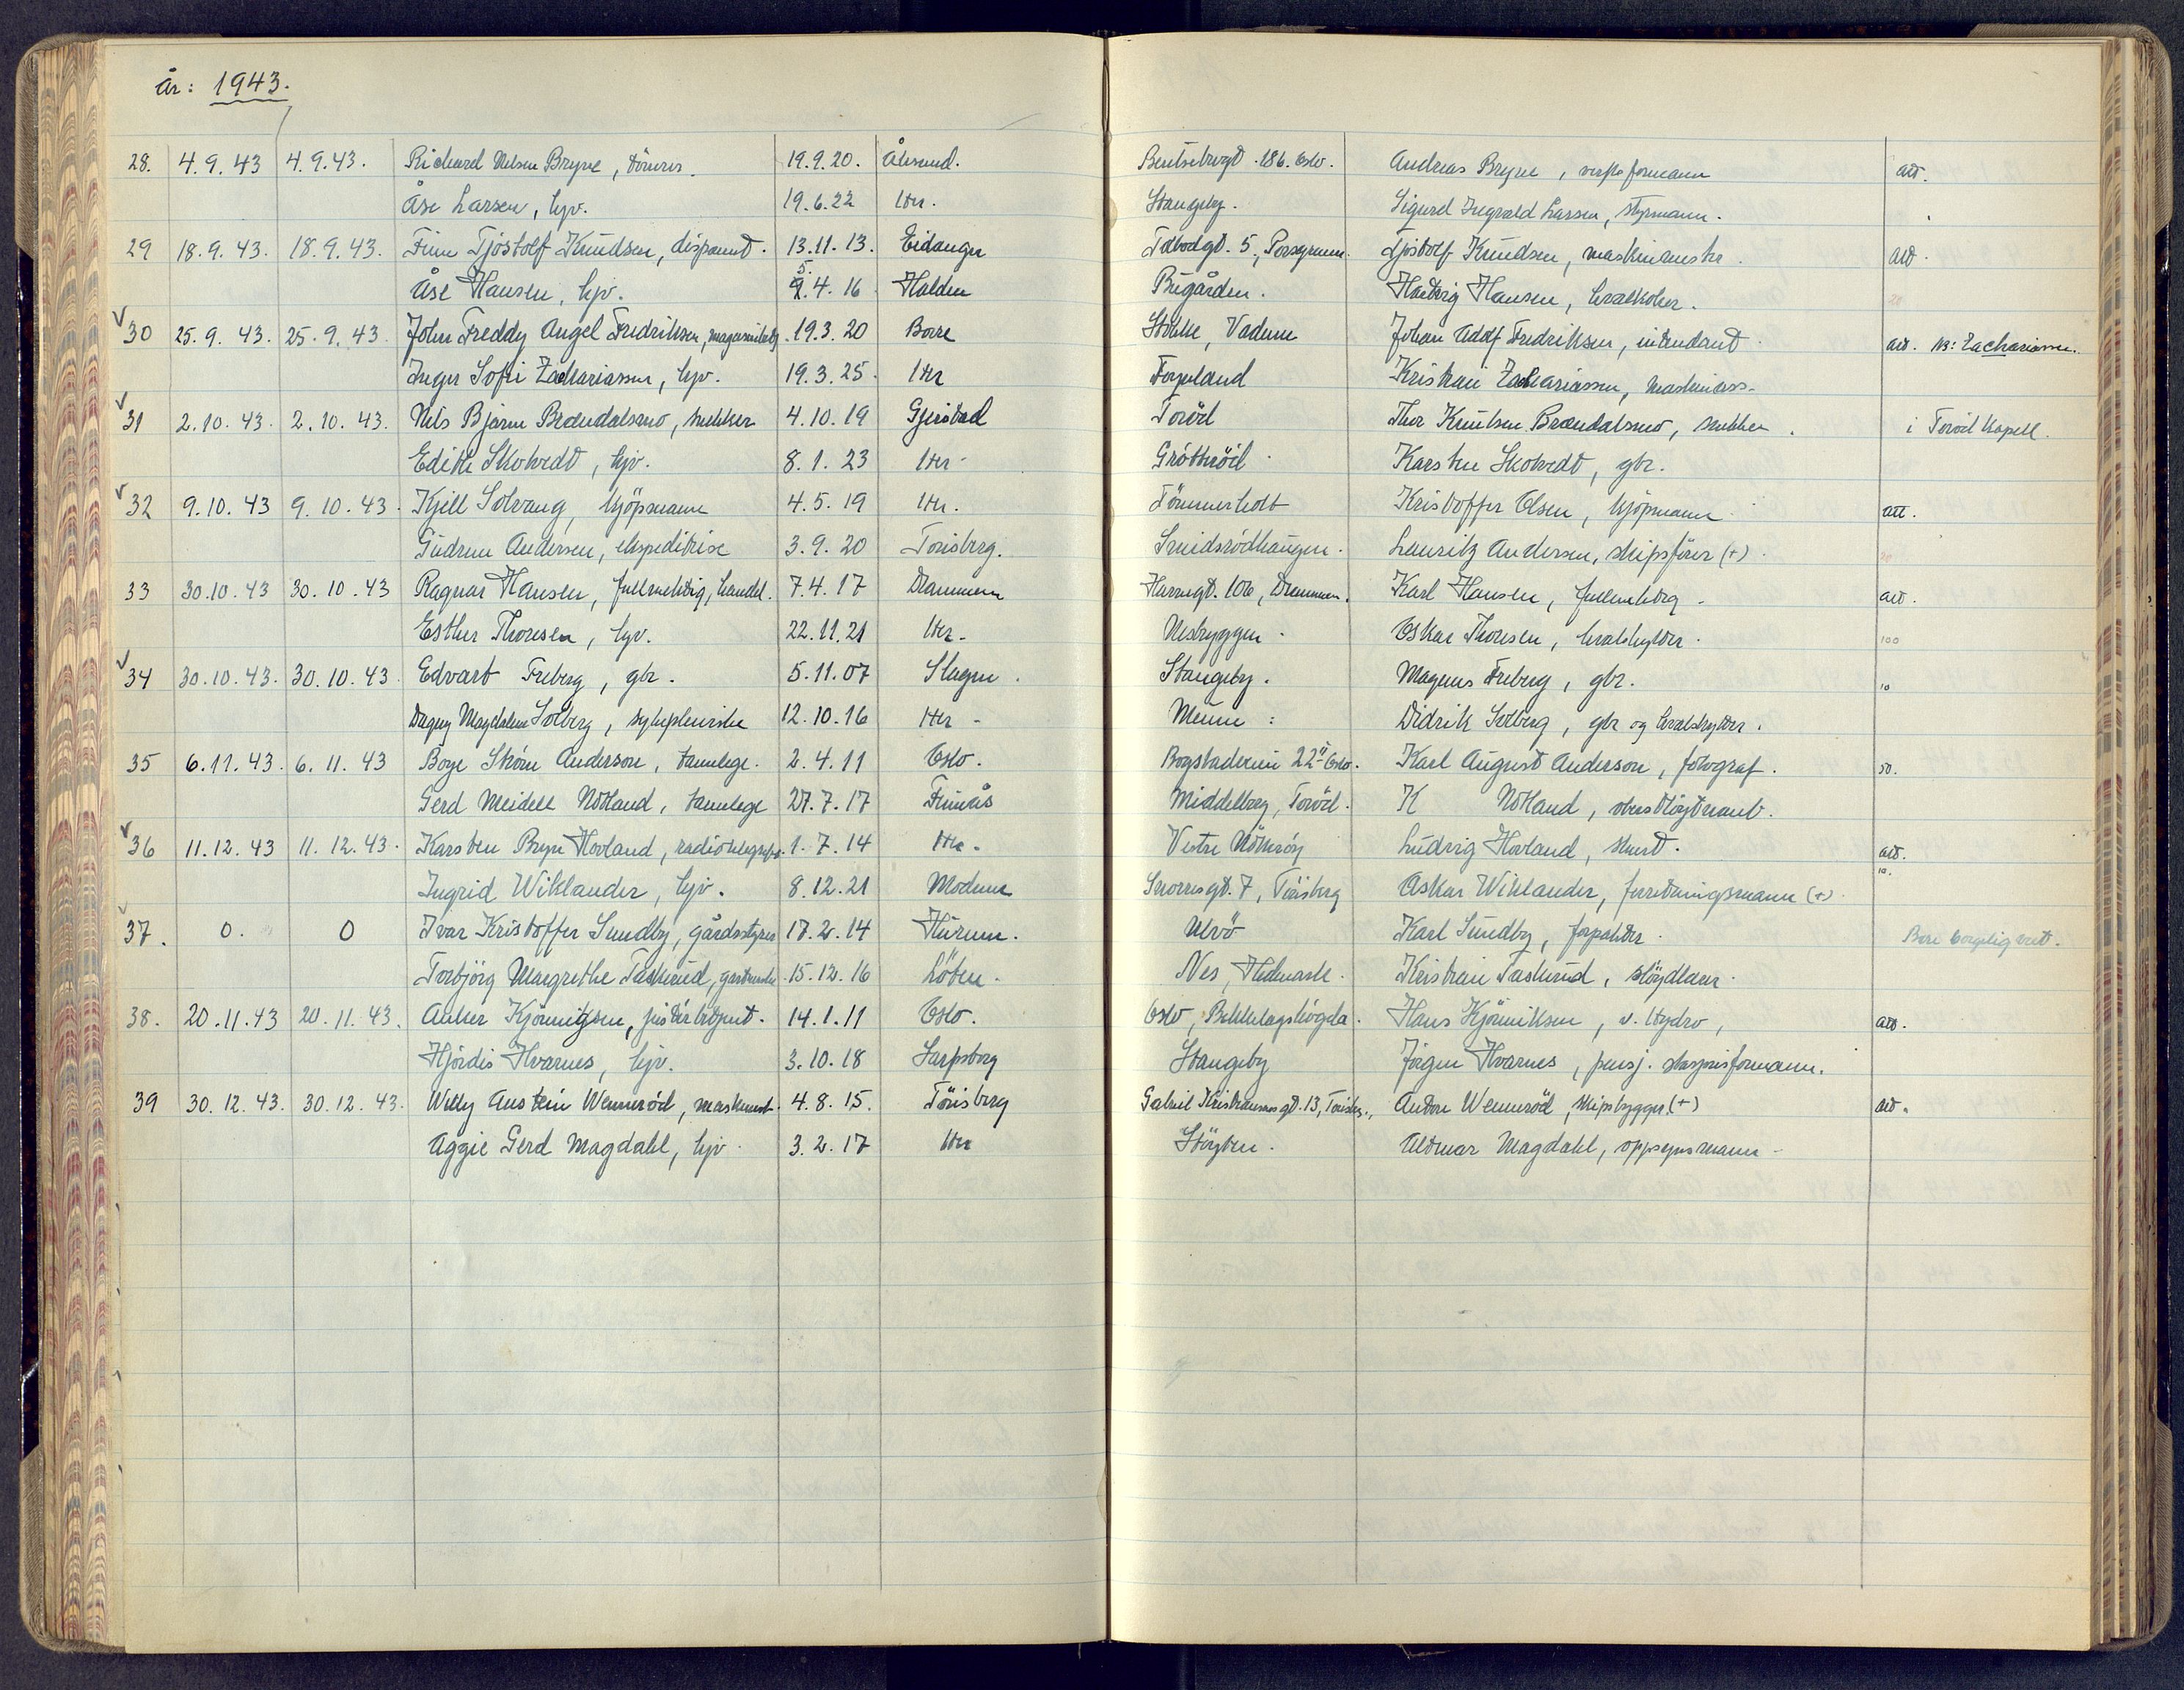 År: 1943.
28. 4.9.43 4.9.43. Richard Nelsen Bryne, 19.9.20. Ålesund. 186. Oslo. Andreas Bryne, formann att.
Åse Larsen, hjv. 19.6.22 Htr. Stangeby. Sigurd Ingvald Larsen, styrmann.
29 18.9.43. 18.9.43. Finn Tjöstolf Knudsen, dispont. 13.11.13. Eidanger Tolbodgt. 5., Porsgrunn. Tjöstolf Knudsen, att.
Åse Hansen, hjv. 5. 4. 16. Halden Bugården. Hansen, hvalkoker.
30 25.9.43. 25.9.43. John Freddy Angel Fredriksen, 19.3.20 Borre Stokke, Vadum Johan Adolf Fredriksen, intendant att. NB: Zachariassen.
Inger Sofie Zachariassen, hjv. 19.3.25. Htr Fynland Kristian Zachariassen, maskinass.
31 2.10.43. 2.10.43. Nils Bjarne Brændalsmo, snekker 4.10.19 Gjerstad Torød Thor Knutsen Brændalsmo, snekker. i Torød kapell.
Edith Skotvedt, hjv. 8.1.23 Htr. Gröttröd Karsten Skotvedt, gbr.
32 9.10.43 9.10.43. Kjell Solvang, kjöpmann 4.5.19 Htr. Tömmerholt Kristoffer Olsen, kjöpmann att.
Gudrun Andersen, ekspeditrise 3.9.20 Tönsberg. Smidsrödhaugen. Lauritz Andersen, skipsförer (+).
33 30.10.43 30.10.43 Ragnar Hansen, fullmektig, handel. 7.4.17 Drammen Havnegt. 106, Drammen. Karl Hansen, fullmektig. att.
Esther Thoresen, hjv. 22.11.21 Htr. Nesbryggen. Oskar Thoresen, hvalskytter. 100
34 30.10.43. 30.10.43. Edvart Freberg, gbr. 5.11.07 Slagen. Stangeby. Magnus Freberg, gbr. 10
Dagny Magdalene Solberg, sykepleierske 12.10.16 Htr. Meum: Didrik Solberg, gbr og hvalskytter.
35 6.11.43. 6.11.43 Börge Ström Anderson, tannlege. 2.4.11 Oslo. Bogstadveien 22 Oslo. Karl August Anderson, fotograf. 50.
Gerd Meidell Nötland, tannlege 27.7.17 Finnås Middelborg, Torød. K Nötland, oberstlöytnant.
36 11.12.43 11.12.43. Karsten Bryn Hovland, radiotelegrafist. 1.7.14 Htr. Vestre Nötteröy Ludvig Hovland, att.
Ingrid Wiklander, hjv. 8.12.21 Modum Snorresgt. 7, Tönsberg Oskar Wiklander, forretningsmann (+). 10.
37. 0. 0 Ivar Kristoffer Sundby, gårdsstyrer 17.2.14 Hurum. Ulvö Karl Sundby, forpakter. Bare borgelig viet.
Torbjörg Margrethe Taskerud, 15.12.16 Löten. Nes, Hedmark. Kristian Taskerud, slöydlærer.
38. 20.11.43 20.11.43. Anker Kjönniksen, 14.1.11 Oslo. Oslo, Bekkelagshögda. Hans Kjönniksen, v. Hydro, att.
Hjördis Hvarnes, hjv. 3.10.18 Sarpsborg Stangeby Jörgen Hvarnes, pensj. formann.
39 30.12.43. 30.12.43. Willy Austein Wennröd, maskinist. 4.8.15. Tönsberg Gabriel Kristiansens gt. 13, Tönsbg., Anton Wennröd, skipsbygger. (+) att.
Aggie Gerd Magdahl, hjv. 3.2.17 Htr Höyten. Magdahl, oppsynsmann.